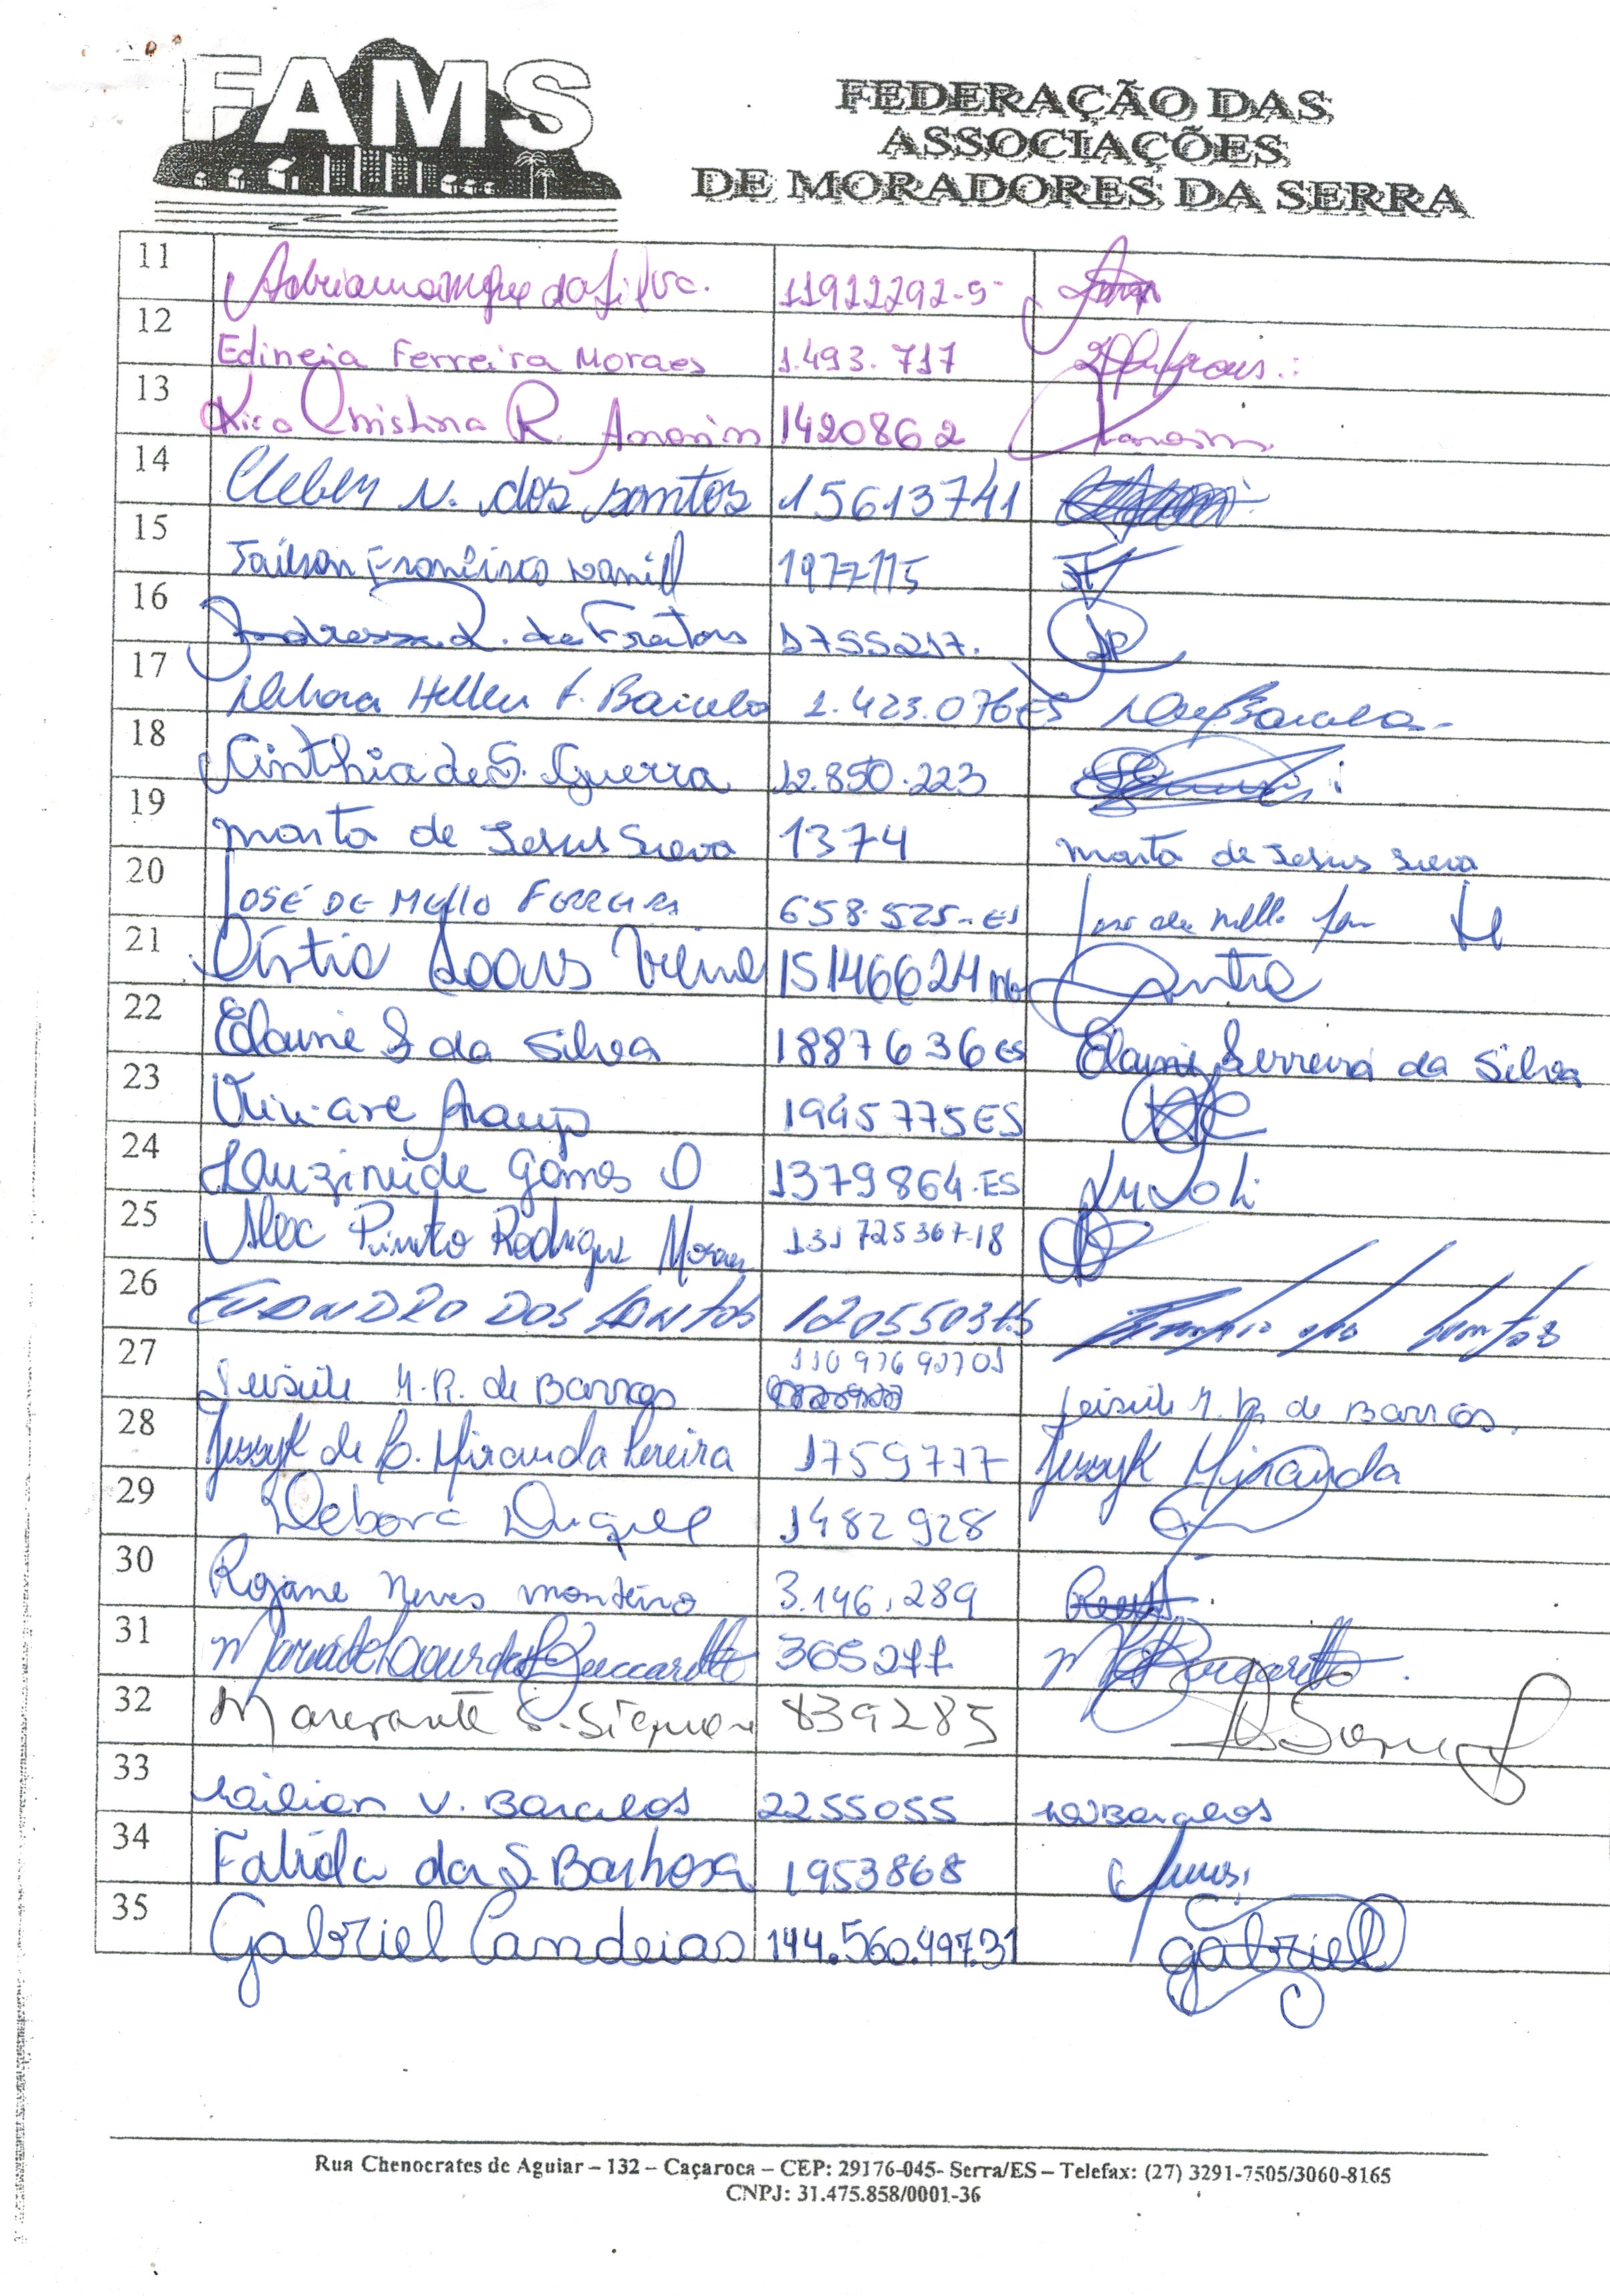 FAMS
FEDERAÇÃO DAS
ASSOCIAÇÕES
DE MORADORES DA SERRA
11 da Silva. 11922292-5
12 Edineia Ferreira Moraes 1.493.717
13 Christina R. Amorim 1420862 Amorim
14 Cleber N. dos santos 15613741
15 Jailson Francisco Daniel 1977115
16 1755217.
17 Debora Hellen F. Barcelo 1.423.076 ES
18 Cinthia de S. Guerra 12.850.223
19 Marta de Jesus 1374 Marta de Jesus
20 JOSÉ DE MELLO FERREIRA 658.525-ES José de mello
21 15146624
22 Elaine F da Silva 1887636 ES Elaine Ferreira da Silva
23 Araujo 1945775 ES
24 Luzineide Gomes O 1379864-ES
25 Alex Pinto Rodrigues Moraes 131725367-18
26 EVANDRO DOS SANTOS dos Santos
27 M. R. de Barros 11097692701 M. R. de Barros.
28 de B. Miranda Pereira 1759777 Miranda
29 Debora Duque 1482928
30 Rojane Neves monteiro 3.146.289
31 Maria de Lourdes 365277
32 Margarete S. Siqueira 839285
33 V. Barcelos 2255055 Barcelos
34 Fabíola da S. Barbosa 1953868
35 Gabriel Candeias 144.560.497.31 gabriel
Rua Chenocrates de Aguiar – 132 – Caçaroca – CEP: 29176-045- Serra/ES – Telefax: (27) 3291-7505/3060-8165
CNPJ: 31.475.858/0001-36